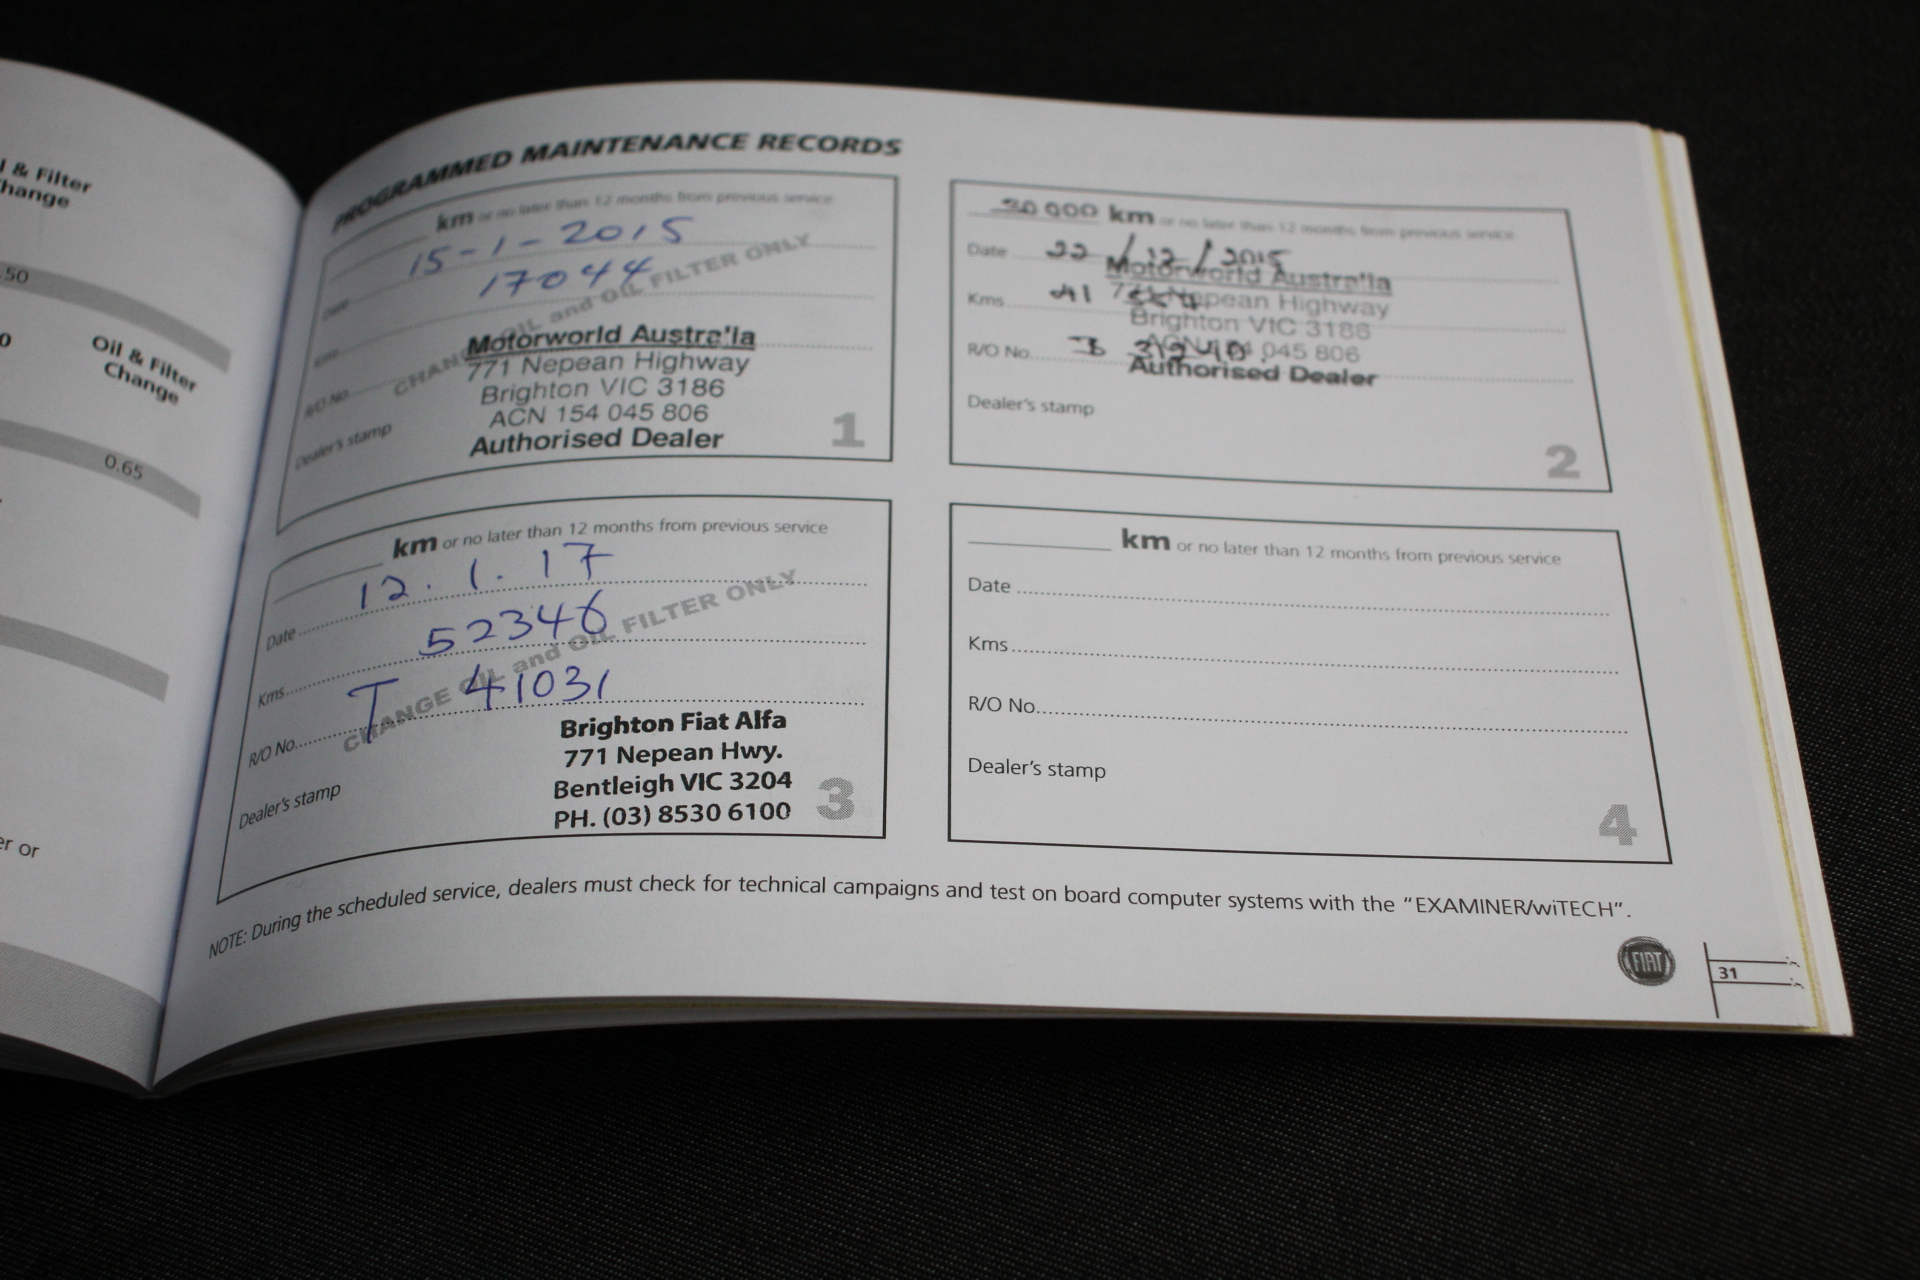 l & Filter
hange
.50
0
Oil & Filter
Change
0.65
er or
PROGRAMMED MAINTENANCE RECORDS
km or no later than 12 months from previous service
Date 15-1-2015
Kms 17044
R/O No.
CHANGE OIL and OIL FILTER ONLY
Dealer's stamp
Motorworld Austra'ia
771 Nepean Highway
Brighton VIC 3186
ACN 154 045 806
Authorised Dealer
1
30 000 km or no later than 12 months from previous service
Date 22/12/2015
Kms 41
R/O No. 31240
Dealer's stamp
Motorworld Austra'ia
771 Nepean Highway
Brighton VIC 3186
ACN 154 045 806
Authorised Dealer
2
km or no later than 12 months from previous service
Date 12.1.17
Kms 52346
R/O No. T 41031
CHANGE OIL and OIL FILTER ONLY
Dealer's stamp
Brighton Fiat Alfa
771 Nepean Hwy.
Bentleigh VIC 3204
PH. (03) 8530 6100
3
km or no later than 12 months from previous service
Date
Kms
R/O No.
Dealer's stamp
4
NOTE: During the scheduled service, dealers must check for technical campaigns and test on board computer systems with the "EXAMINER/wiTECH".
FIAT
31